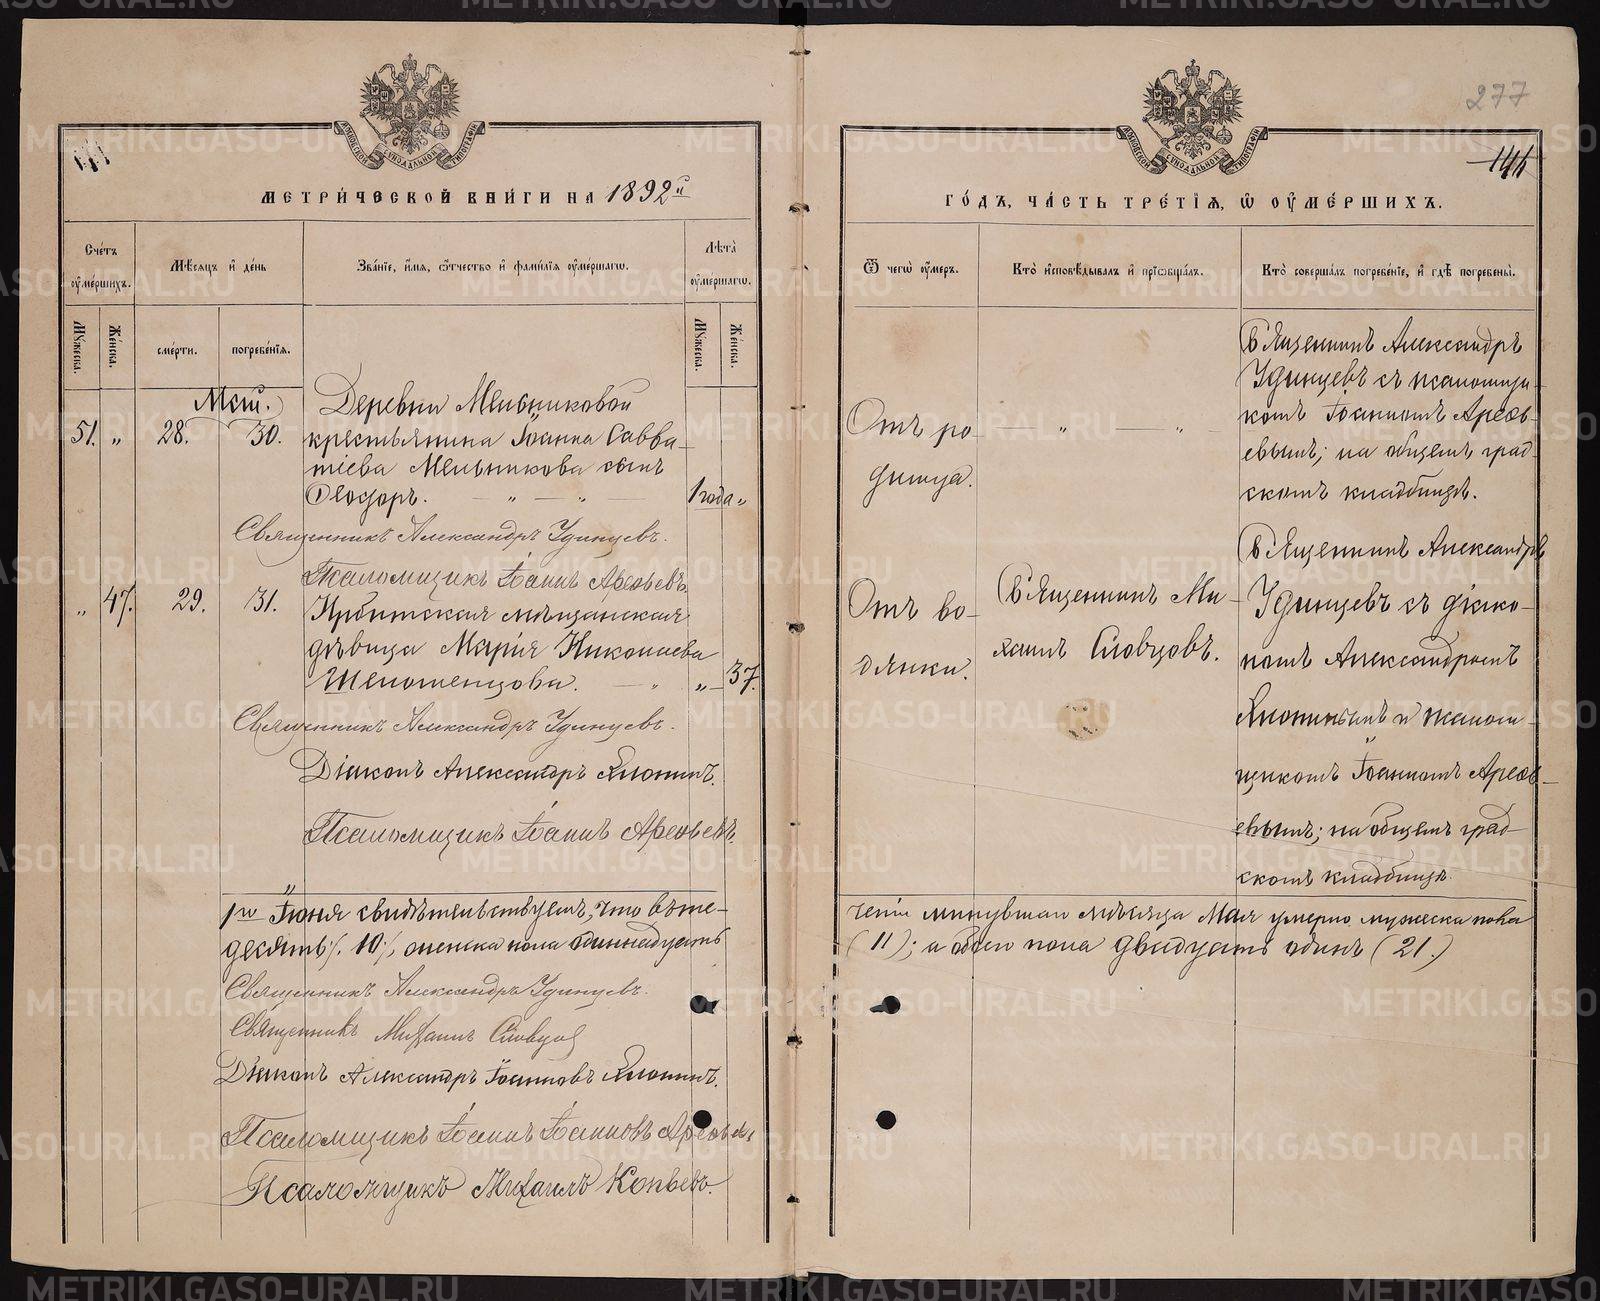 МЕТРИЧЕСКОЙ КНИГИ НА 1892й
Счетъ умершихъ.
Мѣсяцъ и день
Званіе, имя, отчество и фамилія умершаго.
Лѣта умершаго.
Мужеска.
Женска.
смерти.
погребенія.
Мужеска.
Женска.
Май.
Деревни Мельниковой
51. „ 28. 30. крестьянина Іоанна Савва-
тіева Мельникова сынъ
Ѳеодоръ. — „ — „ — 1 года „
Священникъ Александръ Удинцевъ.
Псаломщикъ Іоаннъ Арефьевъ.
„ 47. 29. 31. Ирбитская мѣщанская
дѣвица Марія Николаева
Шеломенцова. — „ „ — 37.
Священникъ Александръ Удинцевъ.
Діаконъ Александръ Ялонинъ.
Псаломщикъ Іоаннъ Арефьевъ.
1го Іюня свидѣтельствуемъ, что въ те-
десять /. 10 /., женска пола одиннадцать
Священникъ Александръ Удинцевъ.
Священникъ Михаилъ Словцов
Діаконъ Александръ Іоанновъ Ялонинъ.
Псаломщикъ Іоаннъ Іоанновъ Арефьевъ
Псаломщикъ Михаилъ Копьевъ.
277
144
ГОДЪ, ЧАСТЬ ТРЕТІЯ, Ѿ УМЕРШИХЪ.
Ѿ чего умеръ.
Кто исповѣдывалъ и пріобщалъ.
Кто совершалъ погребеніе, и гдѣ погребены.
Отъ ро-
димца.
— „ — „ —
Священникъ Александръ
Удинцевъ съ псаломщи-
комъ Іоанномъ Арефь-
евымъ; на общемъ град-
скомъ кладбищѣ.
Отъ во-
дянки.
Священникъ Ми-
хаилъ Словцовъ.
Священникъ Александръ
Удинцевъ съ діако-
номъ Александромъ
Ялонинымъ и псалом-
щикомъ Іоанномъ Арефь-
евымъ; на общемъ град-
скомъ кладбищѣ.
ченіи минувшаго мѣсяца Мая умерло мужеска пола
(11); а обоего пола двадцать одинъ (21.)
METRIKI.GASO-URAL.RU